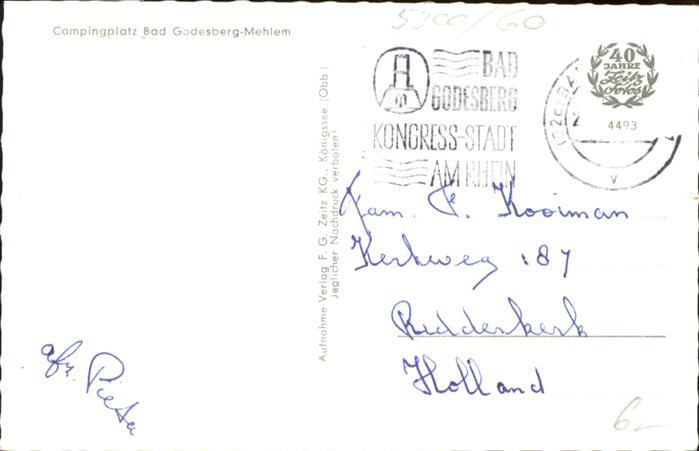 Campingplatz Bad Godesberg-Mehlem
5300/60
BAD
GODESBERG
KONGRESS-STADT
AM RHEIN
40
JAHRE
Zeitz
Fotos
4493
V
Aufnahme-Verlag F. G. Zeitz KG., Königssee (Obb.)
Jeglicher Nachdruck verboten
Fam. F. Kooiman
Kerkweg 187
Ridderkerk
Holland
afz. Pieta
6-